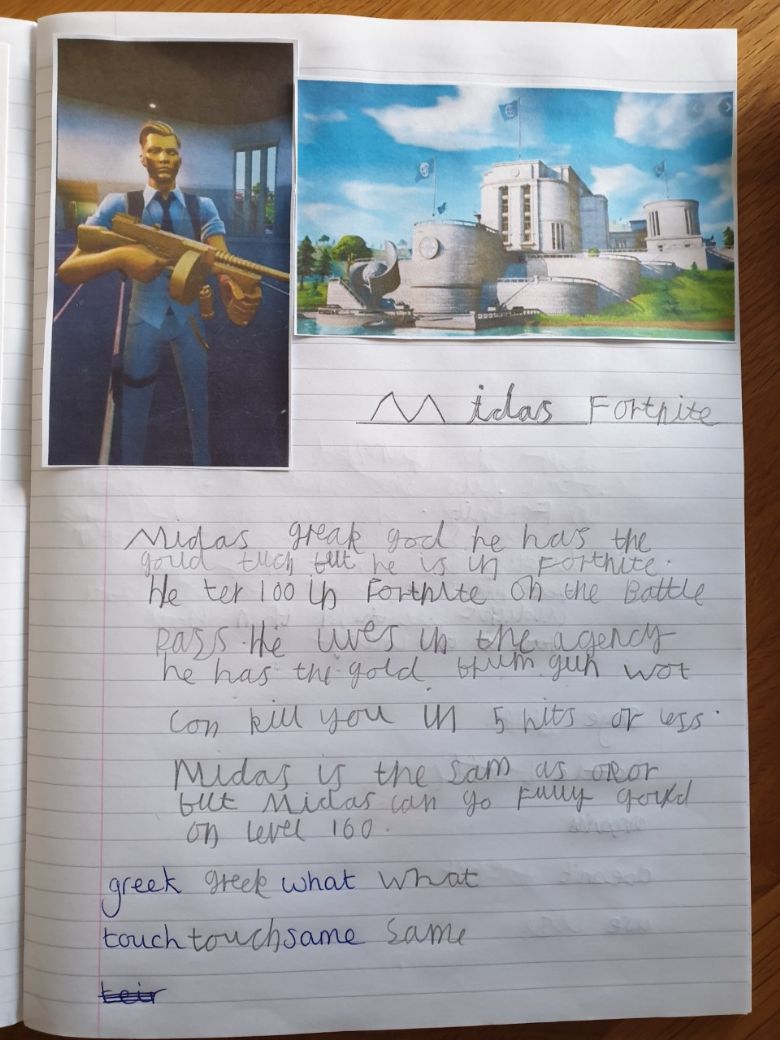 Midas Fortnite
Midas greak god he has the
gould tuch but he is in Fortnite.
He ter 100 in Fortnite on the Battle
pass. He lives in the agency
he has the gold
gun wot
con kill you in 5 hits or less.
Midas is the sam as oror
but Midas can go fully gould
on level 160.
greek greek what what
touch touch same same
teir